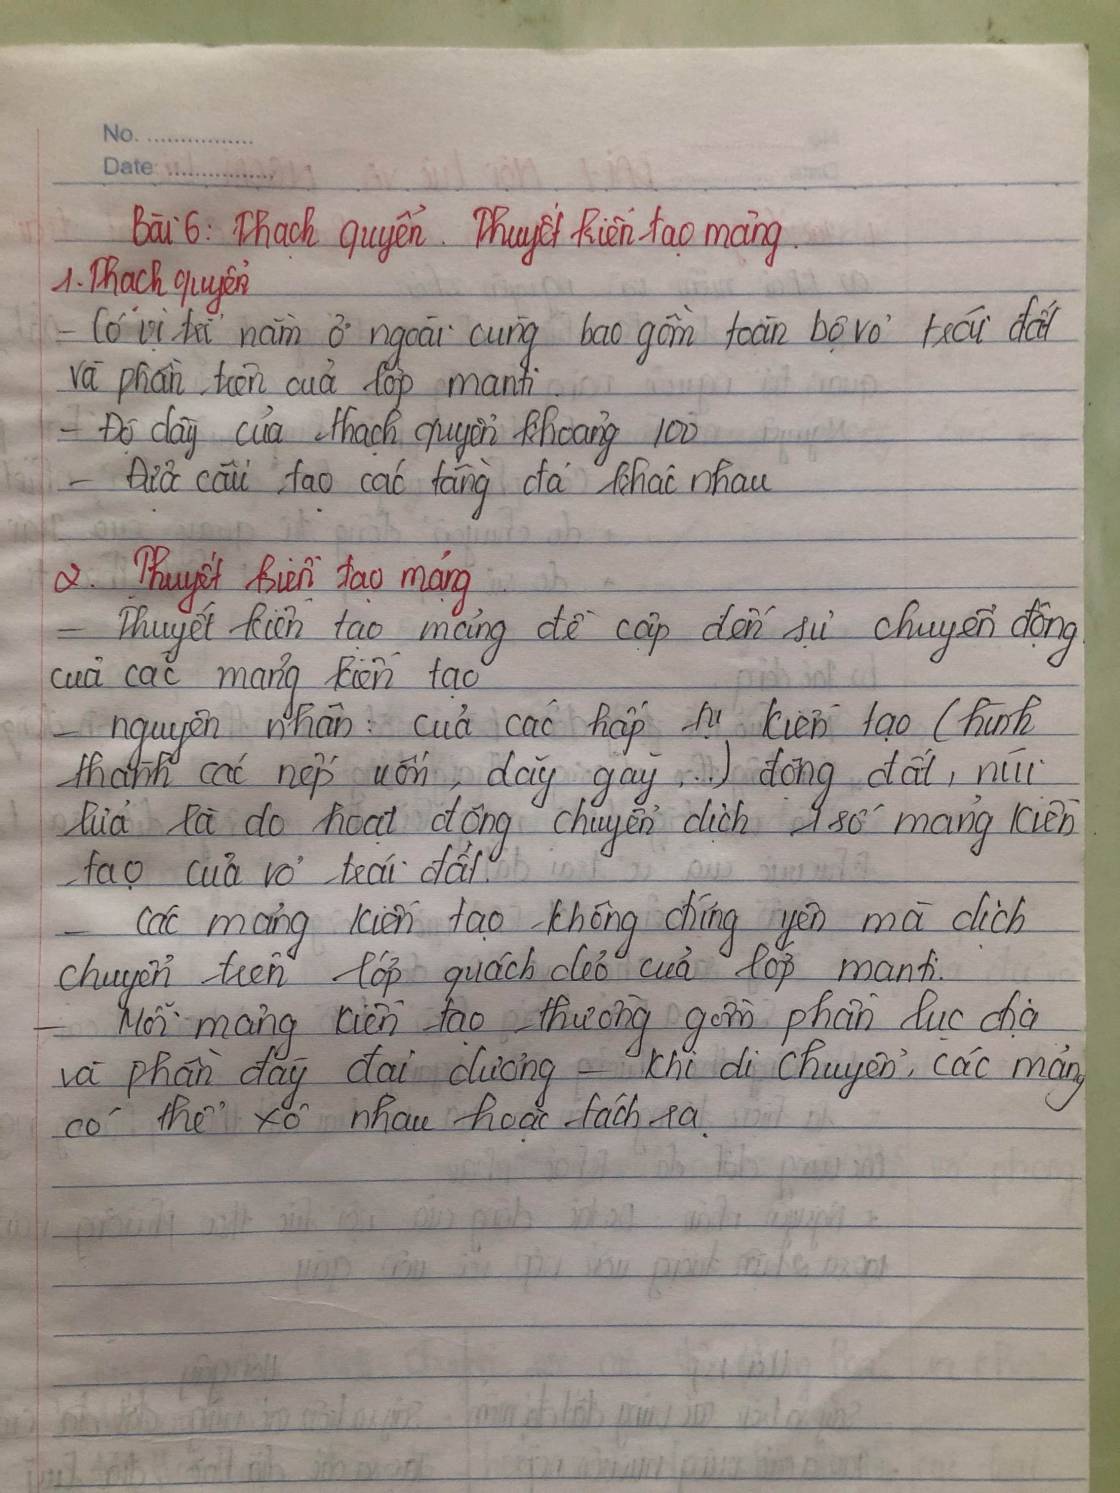 No. ................
Date ................
Bài 6: Thạch quyển. Thuyết kiến tạo mảng.
1. Thạch quyển
- Có vị trí nằm ở ngoài cùng bao gồm toàn bộ vỏ trái đất
và phần trên của lớp manti.
- Độ dày của thạch quyển khoảng 100
- Được cấu tạo các tầng đá khác nhau
2. Thuyết kiến tạo mảng
- Thuyết kiến tạo mảng đề cập đến sự chuyển động
của các mảng kiến tạo
- nguyên nhân: của các kiến tạo (hình
thành các nếp uốn, dãy gãy, ...) động đất, núi
lửa là do hoạt động chuyển dịch 1 số mảng kiến
tạo của vỏ trái đất.
- Các mảng kiến tạo không đứng yên mà dịch
chuyển trên lớp quách dẻo của lớp manti.
- Mỗi mảng kiến tạo thường gồm phần lục địa
và phần đáy đại dương - khi di chuyển, các mảng
có thể xô nhau hoặc tách ra.